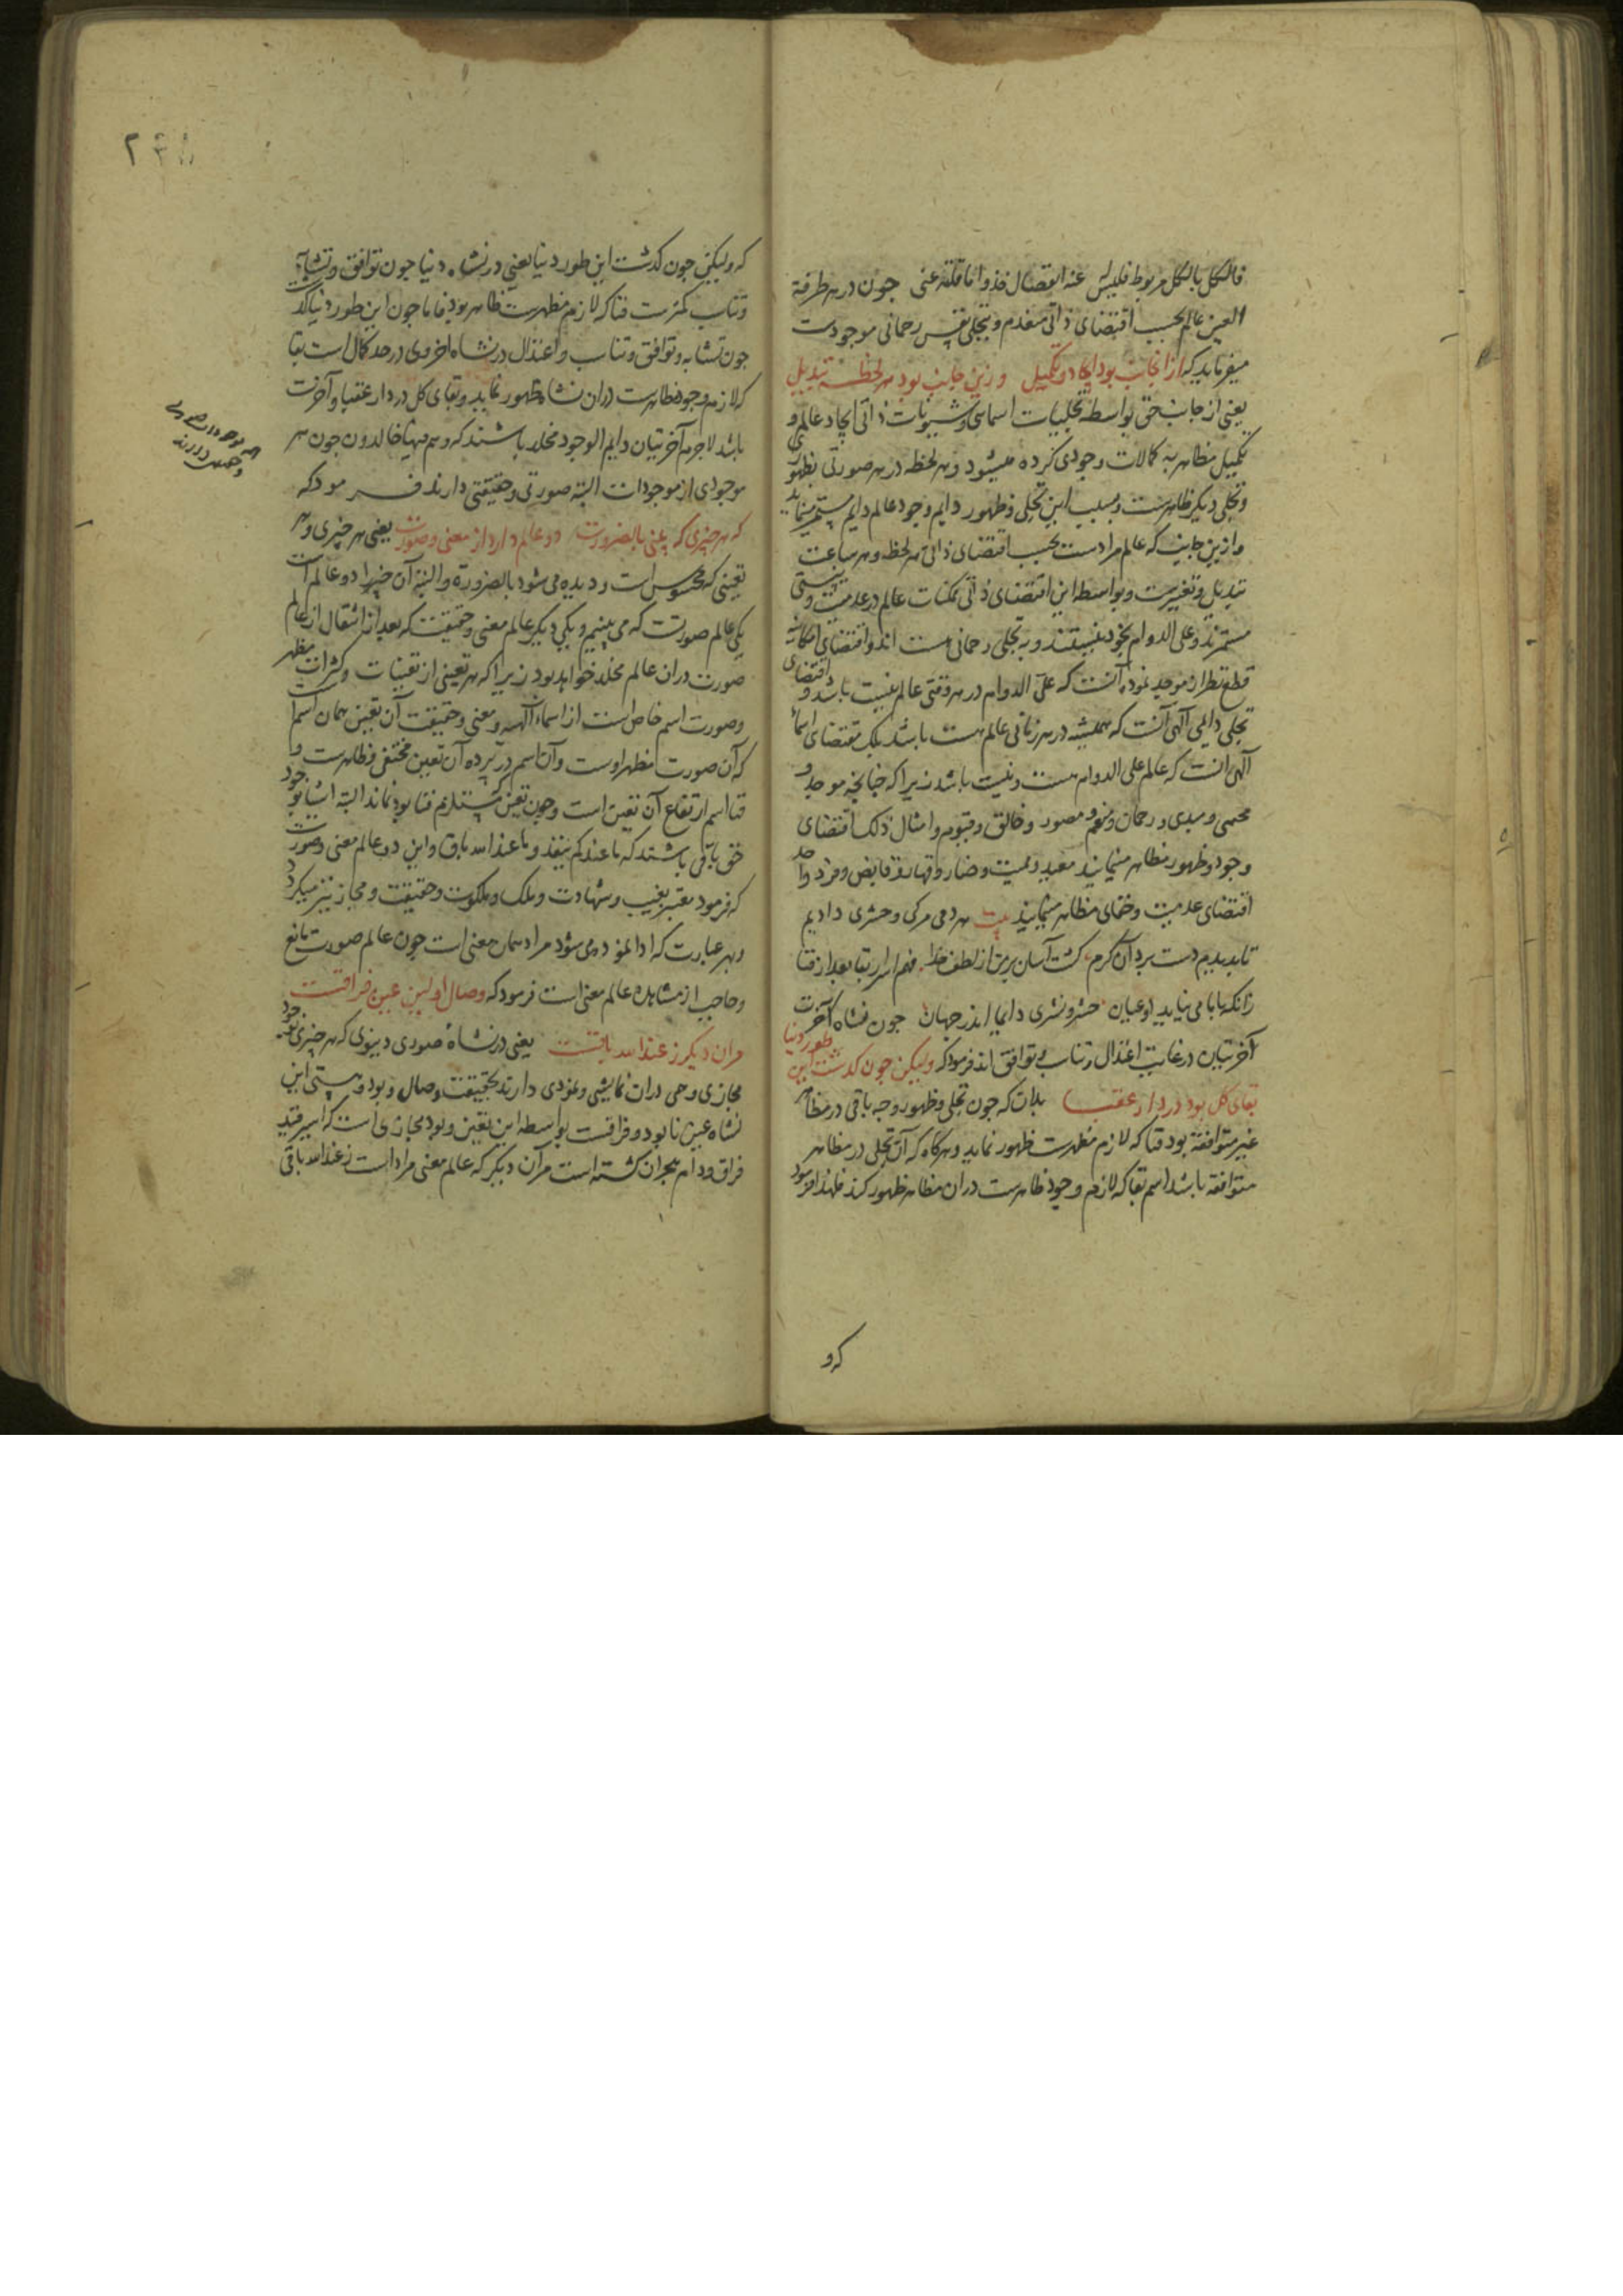 فالکل بالکل مربوط فلیس له عنه انفصال خذوا ما قلته عنی جون در هر طرفة
العین عالم بحسب اقتضای ذاتی منعدم و بتجلی نفس رحمانی موجودست
میفرماید که از آنجانب بود ایجاد و تکمیل وزین جانب بود هر لحظه تبدیل
یعنی از جانب حق بواسطه تجلیات اسمائی و شیونات ذاتی ایجاد عالم و
تکمیل مظاهر به کمالات وجودی کرده میشود و هر لحظه در هر صورتی بظهوری
و تجلی دیگر ظاهرست و بسبب این تجلی و ظهور دایم وجود عالم دایم مستمر مینماید
و ازین جانب که عالم مرادست بحسب اقتضای ذاتی هر لحظه و هر ساعت
تبدیل و تغییرست و بواسطه این اقتضای ذاتی ممکنات عالم در عدمیت و نیستی
مستمرند و علی الدوام بخود نیستند و به تجلی رحمانی هست اند و اقتضای امکانیه
قطع نظر از موجد نموده آنست که علی الدوام در هر وقتی عالم نیست باشد و اقتضای
تجلی دایمی الهی آنست که همیشه در هر زمانی عالم هست باشد بلک مقتضای اسماء
الهی آنست که عالم علی الدوام هست و نیست باشد زیرا که چنانچه موجد و
محیی و مبدی و رحمان و منعم و مصور و خالق و قیوم و امثال ذلک اقتضای
وجود و ظهور مظاهر مینمایند معید و ممیت و ضار و قهار و قابض و فرد واحد
اقتضای عدمیت و خفای مظاهر مینمایند بیت هر دمی مرکی و حشری دادیم
تا بدیدیم دست برد آن کرم کشت آسان بر من از لطف خدا فهم اسرار بقا بعد از فنا
زانکه با ما می نماید او عیان حشر و نشری دایما اندر جهان جون نشاه آخرت
آخرتیان در غایت اعتدال و تناسب و توافق اند فرمود که ولیکن جون کذشت این طور دنیا
بقای کل بود در دار عقبا بدان که جون تجلی و ظهور وجه باقی در مظاهر
غیر متوافقه بود فنا که لازم مظهریت ظهور نماید و هرکاه که آن تجلی در مظاهر
متوافقه باشد اسم بقا که لازم وجود ظاهرست در ان مظاهر ظهور کند فلهذا فرمود
که و
۲۴۵
که ولیکن جون کذشت این طور دنیا یعنی در نشاه دنیا جون توافق و تشابه
و تناسب کمترست فنا که لازم مظهریت ظاهر بود فاما جون این طور دنیا کذشت
جون تشابه و توافق و تناسب و اعتدال در نشاه اخروی در حد کمال است بقا
که لازم وجود ظاهرست در ان نشاه ظهور نماید و بقای کل در دار عقبا و آخرت
باشد لاجرم آخرتیان دایم الوجود مخلد باشند که و هم فیها خالدون جون هر
موجودی از موجودات البته صورتی و حقیقتی دارند فرمود که
که هر چیزی که بینی بالضرورت دو عالم دارد از معنی و صورت یعنی هر چیزی و هر
تعینی که محسوس است و دیده می شود بالضرورة و البته آن چیز را دو عالم است
یکی عالم صورتست که می بینیم و یکی دیکر عالم معنی و حقیقت که بعد از انتقال از عالم
صورت در ان عالم مخلد خواهد بود زیرا که هر تعینی از تعینات و کثرات مظهر
و صورت اسم خاص است از اسماء الهیه و معنی و حقیقت آن تعین همان اسم است
که آن صورت مظهر اوست و آن اسم در پرده آن تعین مختفی و ظاهرست و
فنا اسم ارتفاع آن تعین است و جون تعین که مستلزم فنا بود نماند البته اشیا بوجود
حق باقی باشند که ما عندکم ینفد و ما عند الله باق و این دو عالم معنی و صورت
که فرمود معتبر بغیب و شهادت و ملک و ملکوت و حقیقت و مجاز نیز میکردد
و بهر عبارت که ادا نموده می شود مراد همان معنی است جون عالم صورت مانع
و حاجب از مشاهده عالم معنی است فرمود که وصال اولین عین فراقست
مران دیکر ز عند الله باقست یعنی در نشاه صوری دنیوی که هر چیزی بوجود
مجازی وهمی دران نمایشی و نمودی دارند بحقیقت وصال و بود و هستی این
نشاه عین نابود و فراقست بواسطه این تعین و بود مجازی است که اسیر قید
فراق و دام هجران کشته است مر آن دیکر که عالم معنی مراد است ز عند الله باقی